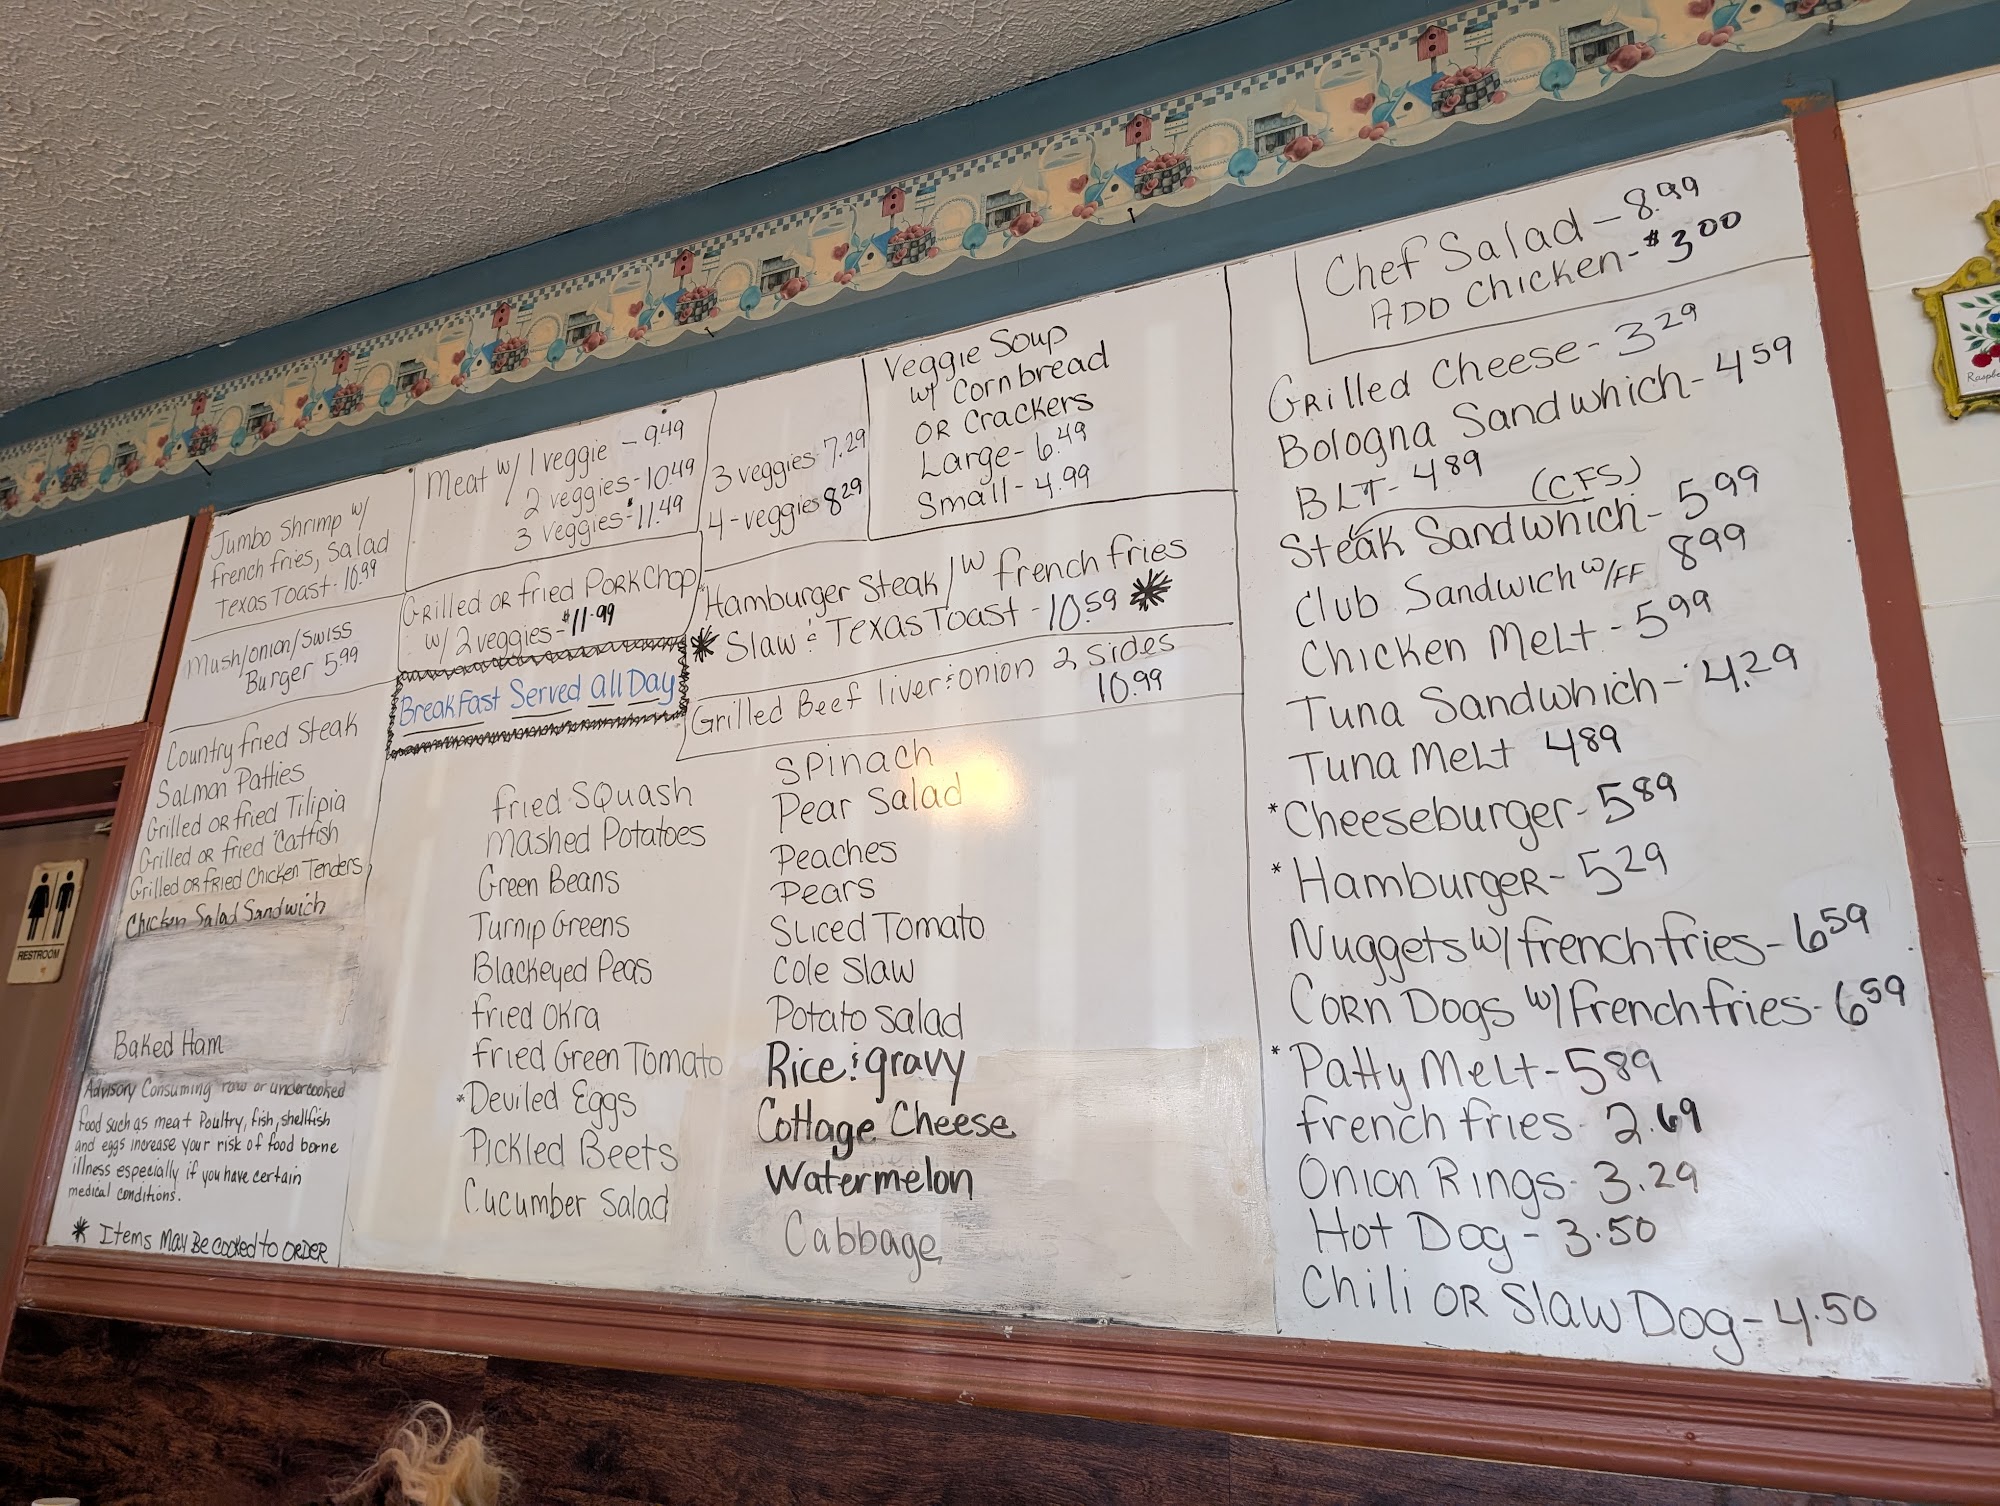 Jumbo Shrimp w/
french fries, Salad
Texas Toast - 10.99
Mush/onion/Swiss
Burger 5.99
Country fried Steak
Salmon Patties
Grilled or fried Tilipia
Grilled or fried Catfish
Grilled or fried Chicken Tenders
Chicken Salad Sandwich
Baked Ham
Advisory Consuming raw or undercooked
food such as meat Poultry, fish, shellfish
and eggs increase your risk of food borne
illness especially if you have certain
medical conditions.
* Items May Be cooked to ORDER
Meat w/ 1 veggie - 9.49
2 veggies - 10.49
3 veggies - $11.49
Grilled or fried Pork Chop
w/ 2 veggies - $11.99
Breakfast Served all Day
3 veggies - 7.29
4 - veggies 8.29
Veggie Soup
w/ Cornbread
or Crackers
Large - 6.49
Small - 4.99
Hamburger Steak /w french fries
* Slaw & Texas Toast - 10.59 *
Grilled Beef liver & onion 2 sides
10.99
fried Squash
Mashed Potatoes
Green Beans
Turnip Greens
Blackeyed Peas
fried okra
fried Green Tomato
*Deviled Eggs
Pickled Beets
Cucumber Salad
Spinach
Pear Salad
Peaches
Pears
Sliced Tomato
Cole Slaw
Potato Salad
Rice & gravy
Cottage Cheese
Watermelon
Cabbage
Chef Salad - 8.99
ADD Chicken - $3.00
Grilled Cheese - 3.29
Bologna Sandwhich - 4.59
BLT - 4.89
(CFS)
Steak Sandwhich - 5.99
Club Sandwich w/FF 8.99
Chicken Melt - 5.99
Tuna Sandwhich - 4.29
Tuna Melt 4.89
*Cheeseburger - 5.89
*Hamburger - 5.29
Nuggets w/ french fries - 6.59
Corn Dogs w/ french fries - 6.59
*Patty Melt - 5.89
french fries - 2.69
Onion Rings - 3.29
Hot Dog - 3.50
Chili or Slaw Dog - 4.50
RESTROOM